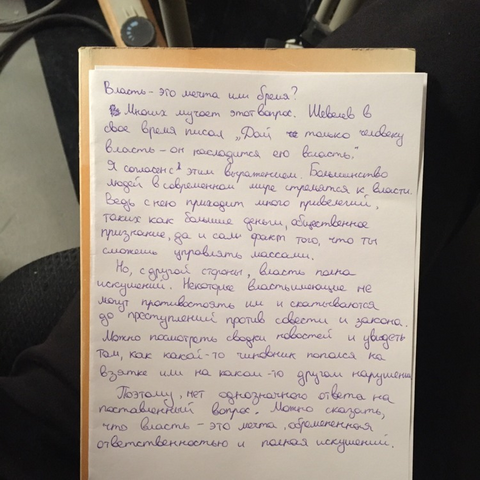 Власть - это мечта или бремя?
Многих мучает этот вопрос. Шевелев в
свое время писал „Дай только человеку
власть – он насладится ею всласть."
Я согласен с этим выражением. Большинство
людей в современном мире стремятся к власти.
Ведь с нею приходит много привелегий,
таких как большие деньги, общественное
признание, да и сам факт того, что ты
сможешь управлять массами.
Но, с другой стороны, власть полна
искушений. Некоторые властьимеющие не
могут противостоять им и скатываются
до преступлений против совести и закона.
Можно посмотреть сводки новостей и увидеть
там, как какой-то чиновник попался на
взятке или на каком-то другом нарушении
Поэтому, нет однозначного ответа на
поставленный вопрос. Можно сказать,
что власть – это мечта, обремененная
ответственностью и полная искушений.